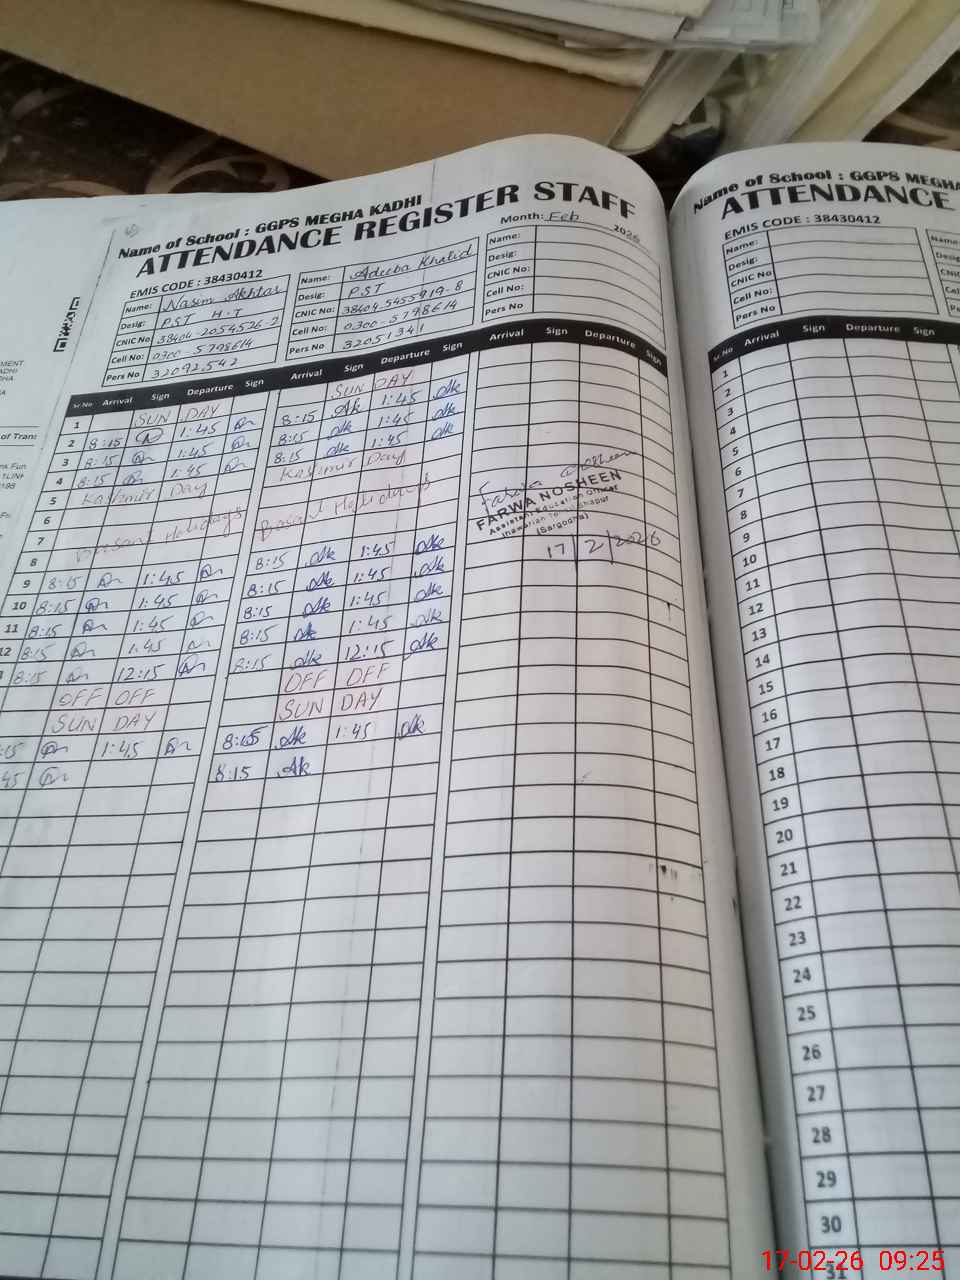 Name of School : GGPS MEGHA KADHI
ATTENDANCE REGISTER STAFF
EMIS CODE : 38430412
Month: Feb 2026
Name: Nasim Akhtar
Desig: PST H.T
CNIC No: 38404-2054526-2
Cell No: 0300-5798614
Pers No 32092542
Name: Adeeba Khalid
Desig: PST
CNIC No: 38404-5455919-8
Cell No: 0300-5798614
Pers No 32051341
Name:
Desig:
CNIC No:
Cell No:
Pers No
Sr.No Arrival Sign Departure Sign Arrival Sign Departure Sign Arrival Sign Departure Sign
1 SUN DAY SUN DAY
2 8:15 1:45 8:15 Ak 1:45 Ak
3 8:15 1:45 8:15 Ak 1:45 Ak
4 8:15 1:45 8:15 Ak 1:45 Ak
5 Kashmir Day Kashmir Day
6
7 Basant Holidays Basant Holidays
8
9 8:15 1:45 8:15 Ak 1:45 Ak
10 8:15 1:45 8:15 Ak 1:45 Ak
11 8:15 1:45 8:15 Ak 1:45 Ak
12 8:15 1:45 8:15 Ak 1:45 Ak
8:15 12:15 8:15 Ak 12:15 Ak
OFF OFF OFF OFF
SUN DAY SUN DAY
:15 1:45 8:15 Ak 1:45 Ak
45 8:15 Ak
Farwa Nosheen
FARWA NOSHEEN
Assistant Education Officer
(Sargodha)
17/2/2026
MENT
ADHI
of Trans
Name of School : GGPS MEGHA
ATTENDANCE
EMIS CODE : 38430412
Name:
Desig:
CNIC No
Cell No:
Pers No
Sr.No Arrival Sign Departure Sign
1
2
3
4
5
6
7
8
9
10
11
12
13
14
15
16
17
18
19
20
21
22
23
24
25
26
27
28
29
30
31
17-02-26 09:25